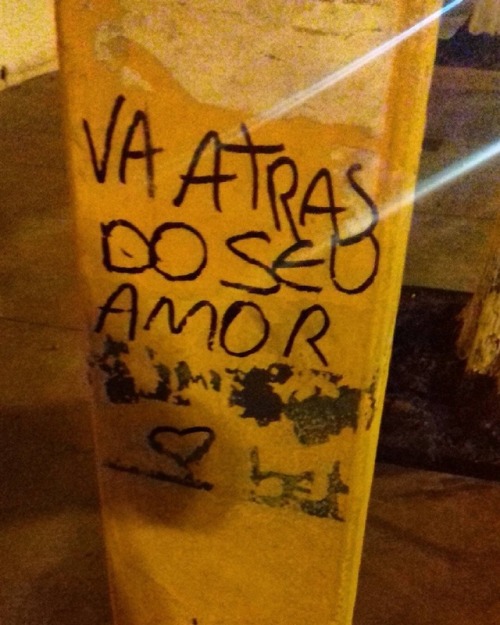 VA ATRAS
DO SEU
AMOR